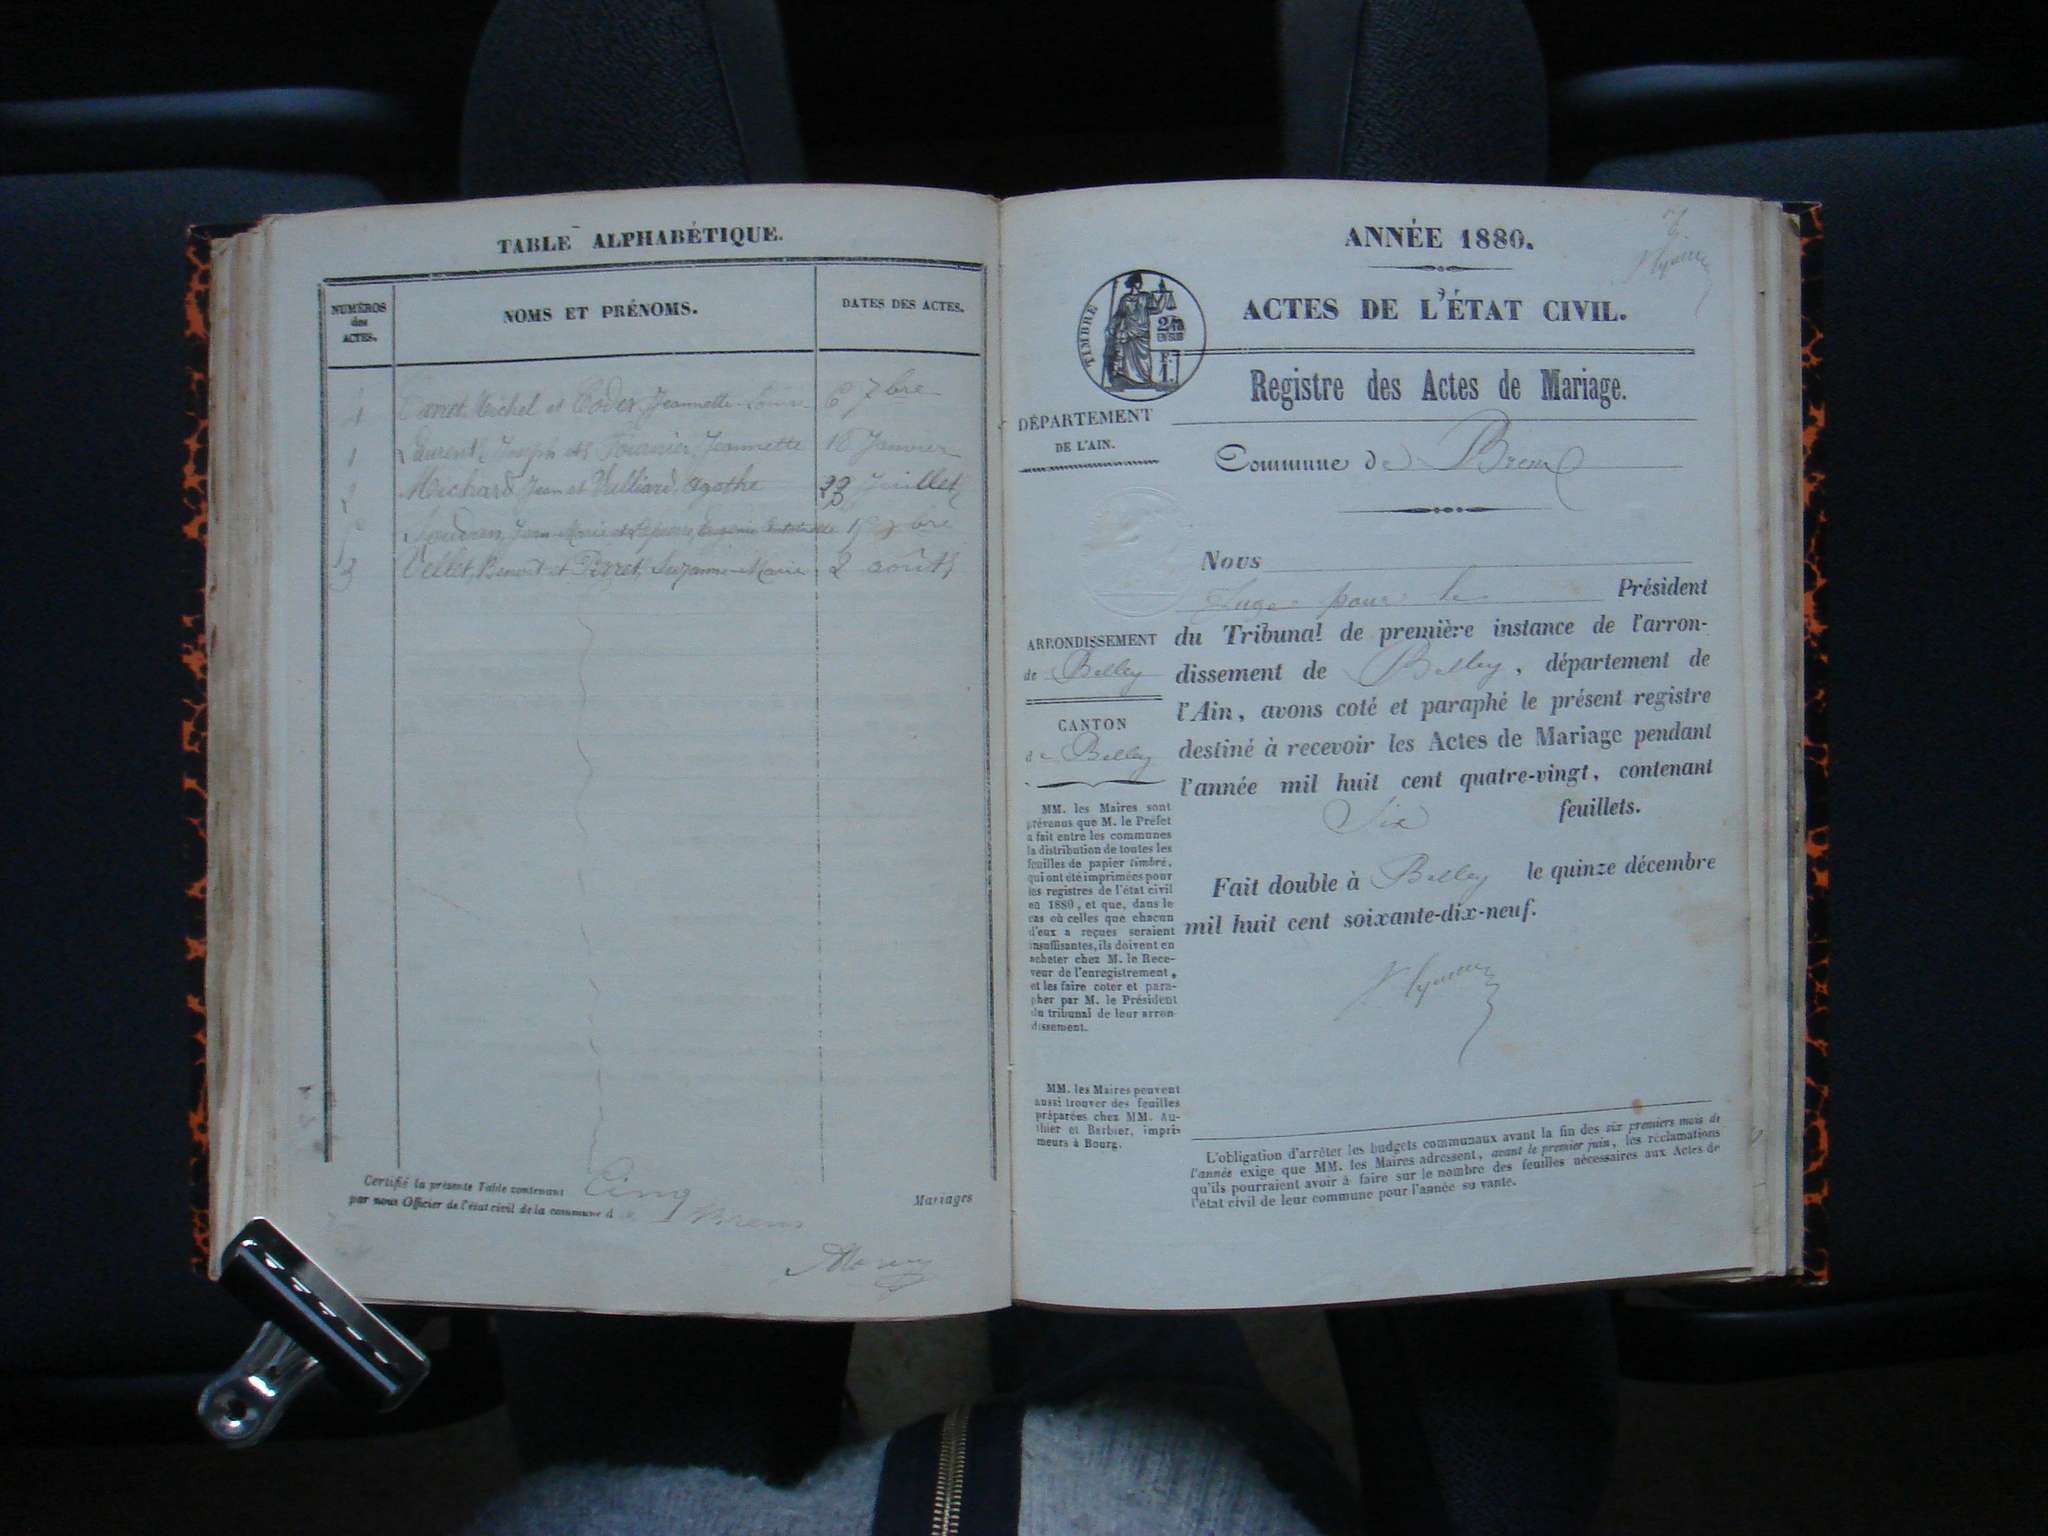 TABLE ALPHABÉTIQUE.
NUMÉROS
des
ACTES.
NOMS ET PRÉNOMS.
DATES DES ACTES.
4 Michel et Jeannette Louise 6 7bre
1 Laurent, Joseph et Fournier, Jeannette 18 Janvier
2 Michard Jean et Vulliard, Agathe 23 Juillet
Jean Marie et Eugénie 7bre
3 Vellet, Benoit et Perret, Suzanne Marie 2 août
Certifié la présente Table contenant Cinq Mariages
par nous Officier de l'état civil de la commune de Brens
ANNÉE 1880.
ACTES DE L'ÉTAT CIVIL.
TIMBRE
Registre des Actes de Mariage.
DÉPARTEMENT
DE L'AIN.
Commune de Brens
Nous
Juge pour le Président
ARRONDISSEMENT
de Belley
CANTON
de Belley
du Tribunal de première instance de l'arron-
dissement de Belley, département de
l'Ain, avons coté et paraphé le présent registre
destiné à recevoir les Actes de Mariage pendant
l'année mil huit cent quatre-vingt, contenant
Six feuillets.
Fait double à Belley le quinze décembre
mil huit cent soixante-dix-neuf.
MM. les Maires sont
prévenus que M. le Préfet
a fait entre les communes
la distribution de toutes les
feuilles de papier timbré,
qui ont été imprimées pour
les registres de l'état civil
en 1880, et que, dans le
cas où celles que chacun
d'eux a reçues seraient
insuffisantes, ils doivent en
acheter chez M. le Rece-
veur de l'enregistrement,
et les faire coter et para-
pher par M. le Président
du tribunal de leur arron-
dissement.
MM. les Maires peuvent
aussi trouver des feuilles
préparées chez MM. Au-
thier et Barbier, impri-
meurs à Bourg.
L'obligation d'arrêter les budgets communaux avant la fin des six premiers mois de
l'année exige que MM. les Maires adressent, avant le premier juin, les réclamations
qu'ils pourraient avoir à faire sur le nombre des feuilles nécessaires aux Actes de
l'état civil de leur commune pour l'année su vante.